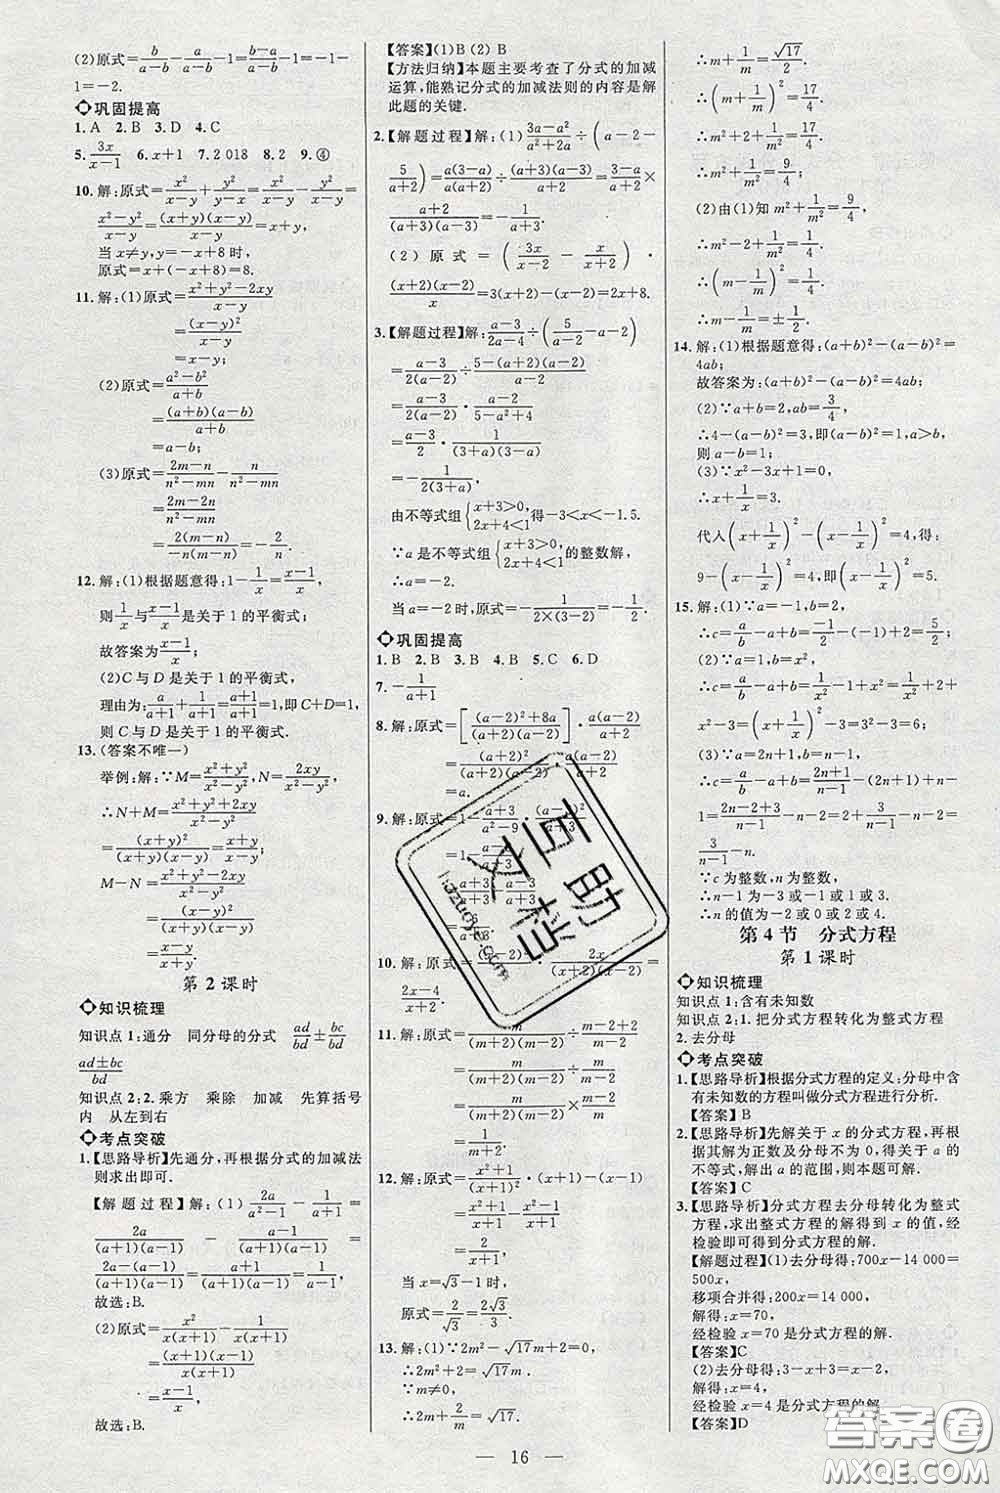 (2)原式=b/(a-b)-a/(a-b)-1=(b-a)/(a-b)-1=-1-
1=-2.
巩固提高
1.A 2.B 3.D 4.C
5.3x/(x-1) 6.x+1 7.2 018 8.2 9.④
10.解:原式=x²/(x-y)+y²/(y-x)=x²/(x-y)-y²/(x-y)=
(x²-y²)/(x-y)=(x+y)(x-y)/(x-y)=x+y,
当x≠y,y=-x+8时,
原式=x+(-x+8)=8.
11.解:(1)原式=(x²+y²-2xy)/(x-y)
=(x-y)²/(x-y)
=x-y;
(2)原式=(a²-b²)/(a+b)
=(a+b)(a-b)/(a+b)
=a-b;
(3)原式=(2m-n)/(n²-mn)-n/(n²-mn)
=(2m-2n)/(n²-mn)
=2(m-n)/(-n(m-n))=-2/n.
12.解:(1)根据题意得:1-1/x=(x-1)/x,
则1/x与(x-1)/x是关于1的平衡式;
故答案为(x-1)/x;
(2)C与D是关于1的平衡式,
理由为:a/(a+1)+1/(a+1)=(a+1)/(a+1)=1,即C+D=1,
则C与D是关于1的平衡式.
13.(答案不唯一)
举例:解:∵M=(x²+y²)/(x²-y²),N=2xy/(x²-y²),
∴N+M=(x²+y²+2xy)/(x²-y²)
=(x+y)²/((x+y)(x-y))=(x+y)/(x-y);
M-N=(x²+y²-2xy)/(x²-y²)
=(x-y)²/((x+y)(x-y))
=(x-y)/(x+y).
第2课时
知识梳理
知识点1:通分 同分母的分式 ad/bd±bc/bd
(ad±bc)/bd
知识点2:2.乘方 乘除 加减 先算括号
内 从左到右
考点突破
1.【思路导析】先通分,再根据分式的加减法
则求出即可.
【解题过程】解:(1)2a/(a²-1)-1/(a+1)=
2a/((a+1)(a-1))-(a-1)/((a+1)(a-1))=
(2a-(a-1))/((a+1)(a-1))=(a+1)/((a+1)(a-1))=1/(a-1).
故选:B.
(2)原式=x²/(x(x+1))-1/(x(x+1))
=(x+1)(x-1)/(x(x+1))
=(x-1)/x.
故选:B.
【答案】(1)B (2) B
【方法归纳】本题主要考查了分式的加减
运算,能熟记分式的加减法则的内容是解
此题的关键.
2.【解题过程】解:(1)(3a-a²)/(a²+2a)÷(a-2-
5/(a+2))=a(3-a)/(a(a+2))÷(a+3)(a-3)/(a+2)=(3-a)/(a+2)×
(a+2)/((a+3)(a-3))=-1/(a+3).
(2)原式=(3x/(x-2)-x/(x+2))·
(x+2)(x-2)/x=3(x+2)-(x-2)=2x+8.
3.【解题过程】解:(a-3)/(2a-4)÷(5/(a-2)-a-2)
=(a-3)/(2(a-2))÷(5-(a+2)(a-2))/(a-2)
=(a-3)/(2(a-2))·(a-2)/(5-a²+4)
=(a-3)/2·1/((3+a)(3-a))
=-1/(2(3+a)).
由不等式组{x+3>0, 2x+4<1得-3<x<-1.5.
∵a是不等式组{x+3>0, 2x+4<1的整数解,
∴a=-2.
当a=-2时,原式=-1/(2×(3-2))=-1/2.
巩固提高
1.B 2.B 3.B 4.B 5.C 6.D
7.-1/(a+1)
8.解:原式=[((a-2)²+8a)/((a+2)(a-2))]·a(a-2)/(a+2)
=(a+2)²/((a+2)(a-2))·a(a-2)/(a+2)
=a.
9.解:原式=1-(a+3)/(a²-9)·(a-3)²/(a+3)
10.解:原式=
(2x-4)/(x+2).
11.解:原式=m/((m+2)(m-2))÷(m-2+2)/(m-2)
=m/((m+2)(m-2))÷m/(m-2)
=m/((m+2)(m-2))×(m-2)/m
=1/(m+2).
12.解:原式=x²(x+1)/(x+1)²·(x+1)-(x-1)
=x²/(x+1)-(x²-1)/(x+1)
=1/(x+1),
当x=√3-1时,
原式=2/√3=2√3/3.
13.解:(1)∵2m²-√17m+2=0,
∴2m²+2=√17m.
∵m≠0,
∴2m+2/m=√17.
∴m+1/m=√17/2.
∴(m+1/m)²=17/4.
∴m²+2+1/m²=17/4.
∴m²+1/m²=9/4.
(2)由(1)知m²+1/m²=9/4,
∴m²-2+1/m²=1/4.
∴(m-1/m)²=1/4.
∴m-1/m=±1/2.
14.解:(1)根据题意得:(a+b)²-(a-b)²=
4ab;
故答案为:(a+b)²-(a-b)²=4ab;
(2)∵a+b=2,ab=3/4,
∴4-(a-b)²=3,即(a-b)²=1,a>b,
则a-b=1;
(3)∵x²-3x+1=0,
∴x+1/x=3.
代入(x+1/x)²-(x-1/x)²=4,得:
9-(x-1/x)²=4,即(x-1/x)²=5.
15.解:(1)∵a=-1,b=2,
∴c=a/b-a+b=-1/2-(-1)+2=5/2;
(2)∵a=1,b=x²,
∴c=a/b-a+b=1/x²-1+x²=1/x²+2+
x²-3=(x+1/x)²-3=3²-3=6;
(3)∵a=2n+1,b=n-1,
∴c=a/b-a+b=(2n+1)/(n-1)-(2n+1)+n-
1=(2n-2+3)/(n-1)-2n-1+n-1=
3/(n-1)-n.
∵c为整数,n为整数,
∴n-1=-3或-1或1或3,
∴n的值为-2或0或2或4.
第4节 分式方程
第1课时
知识梳理
知识点1:含有未知数
知识点2:1.把分式方程转化为整式方程
2.去分母
考点突破
1.【思路导析】根据分式方程的定义:分母中含
有未知数的方程叫做分式方程进行分析.
【答案】B
2.【思路导析】先解关于x的分式方程,再根
据其解为正数及分母不为0,得关于a的
不等式,解出a的范围,则本题可解.
【答案】C
3.【思路导析】分式方程去分母转化为整式
方程,求出整式方程的解得到x的值,经
检验即可得到分式方程的解.
【解题过程】(1)去分母得:700x-14 000=
500x,
移项合并得:200x=14 000,
解得:x=70,
经检验x=70是分式方程的解.
【答案】C
(2)去分母得:3-x+3=x-2,
解得:x=4,
经检验x=4是分式方程的解.
【答案】D
16
互助文档
hzzuoye.com
答案圈
MXQE.COM